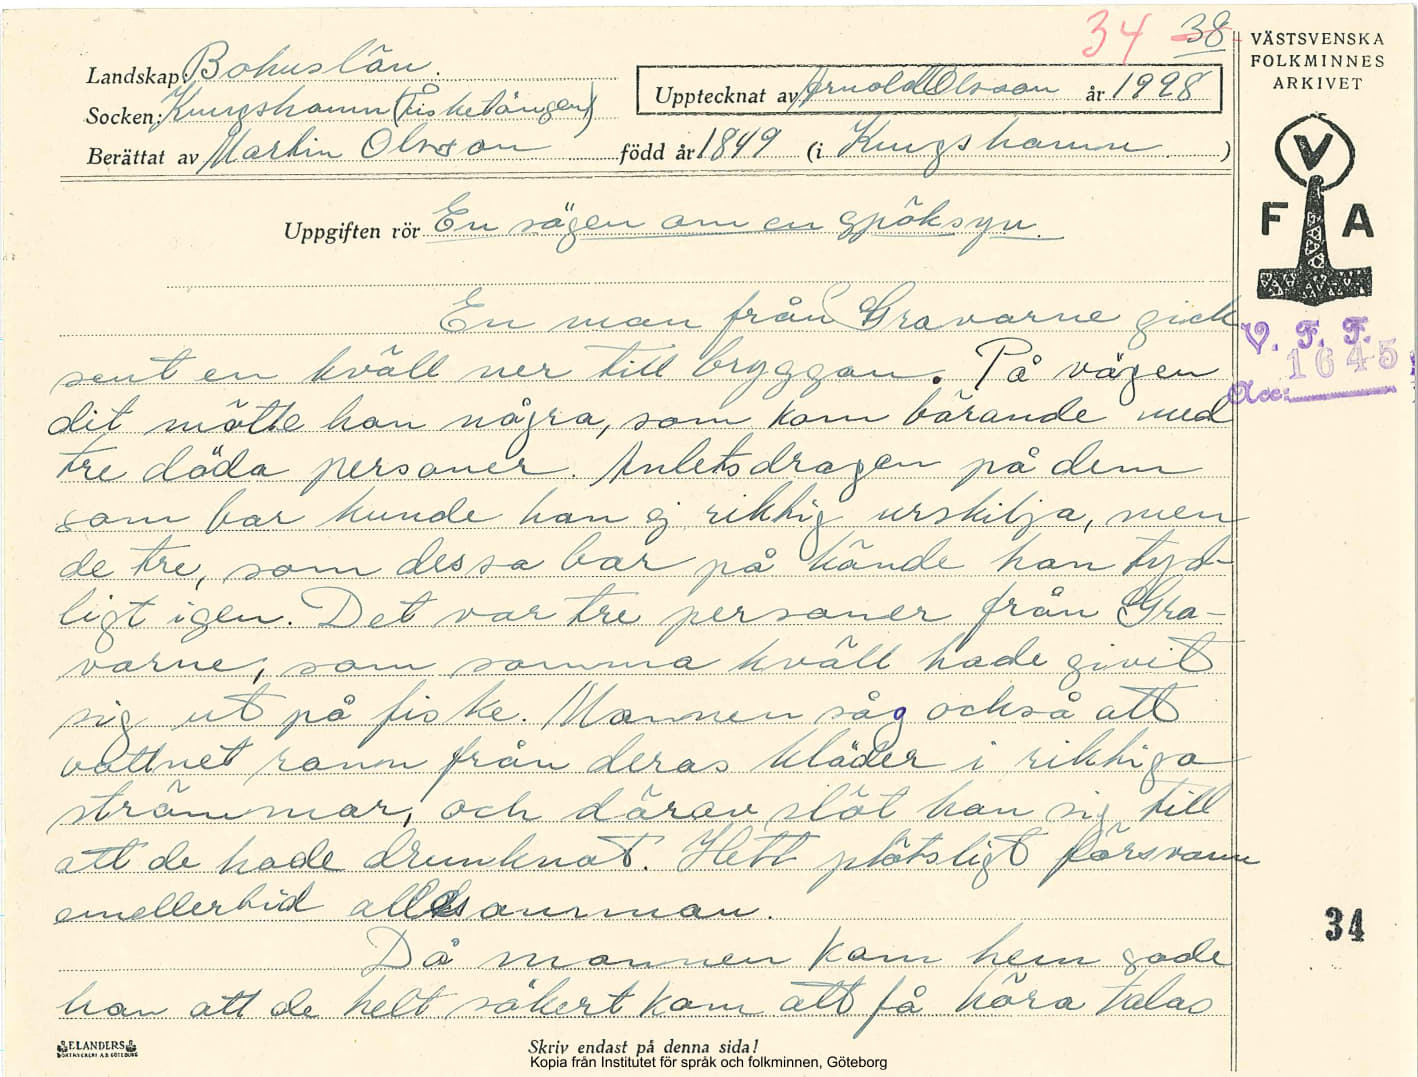 34 38
VÄSTSVENSKA
FOLKMINNES
ARKIVET
Landskap: Bohuslän.
Socken: Kungshamn (Fisketången)
Upptecknat av Arnold Olsson år 1928
Berättat av Martin Olsson född år 1849 (i Kungshamn)
V
F A
Uppgiften rör En sägen om en spöksyn.
V. F. F.
1645
Acc:
En man från Gravarne gick
sent en kväll ner till bryggan. På vägen
dit mötte han några, som kom bärande med
tre döda personer. Anletsdragen på dem
som bar kunde han ej riktig urskilja, men
de tre, som dessa bar på kände han tyd-
ligt igen. Det var tre personer från Gra-
varne, som samma kväll hade givit
sig ut på fiske. Mannen såg också att
vattnet rann från deras kläder i riktiga
strömmar, och därav slöt han sig till
att de hade drunknat. Hett plötsligt försvann
emellertid allesamman.
Då mannen kom hem sade
han att de helt säkert kom att få höra talas
34
ELANDERS
BOKTRYCKERI A.B. GÖTEBORG
Skriv endast på denna sida!
Kopia från Institutet för språk och folkminnen, Göteborg